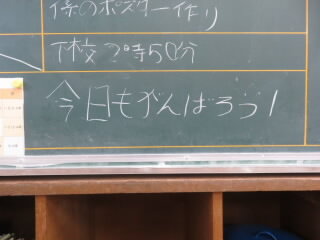 係のポスター作り
下校2時50分
今日もがんばろう!